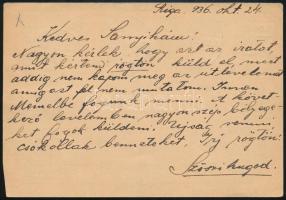 Riga, 936. okt. 24.
Kedves Sanyikám!
Nagyon kérlek, hogy azt az iratot,
amit kértem, rögtön küld el, mert
addig nem kapom meg az útlevelemet
amíg azt fel nem mutatom. Innen
Memelbe fogunk menni. A követ-
kező levelemben nagyon szép bélyege-
ket fogok küldeni. Ujság semmi
csókollak benneteket, Írj rögtön!